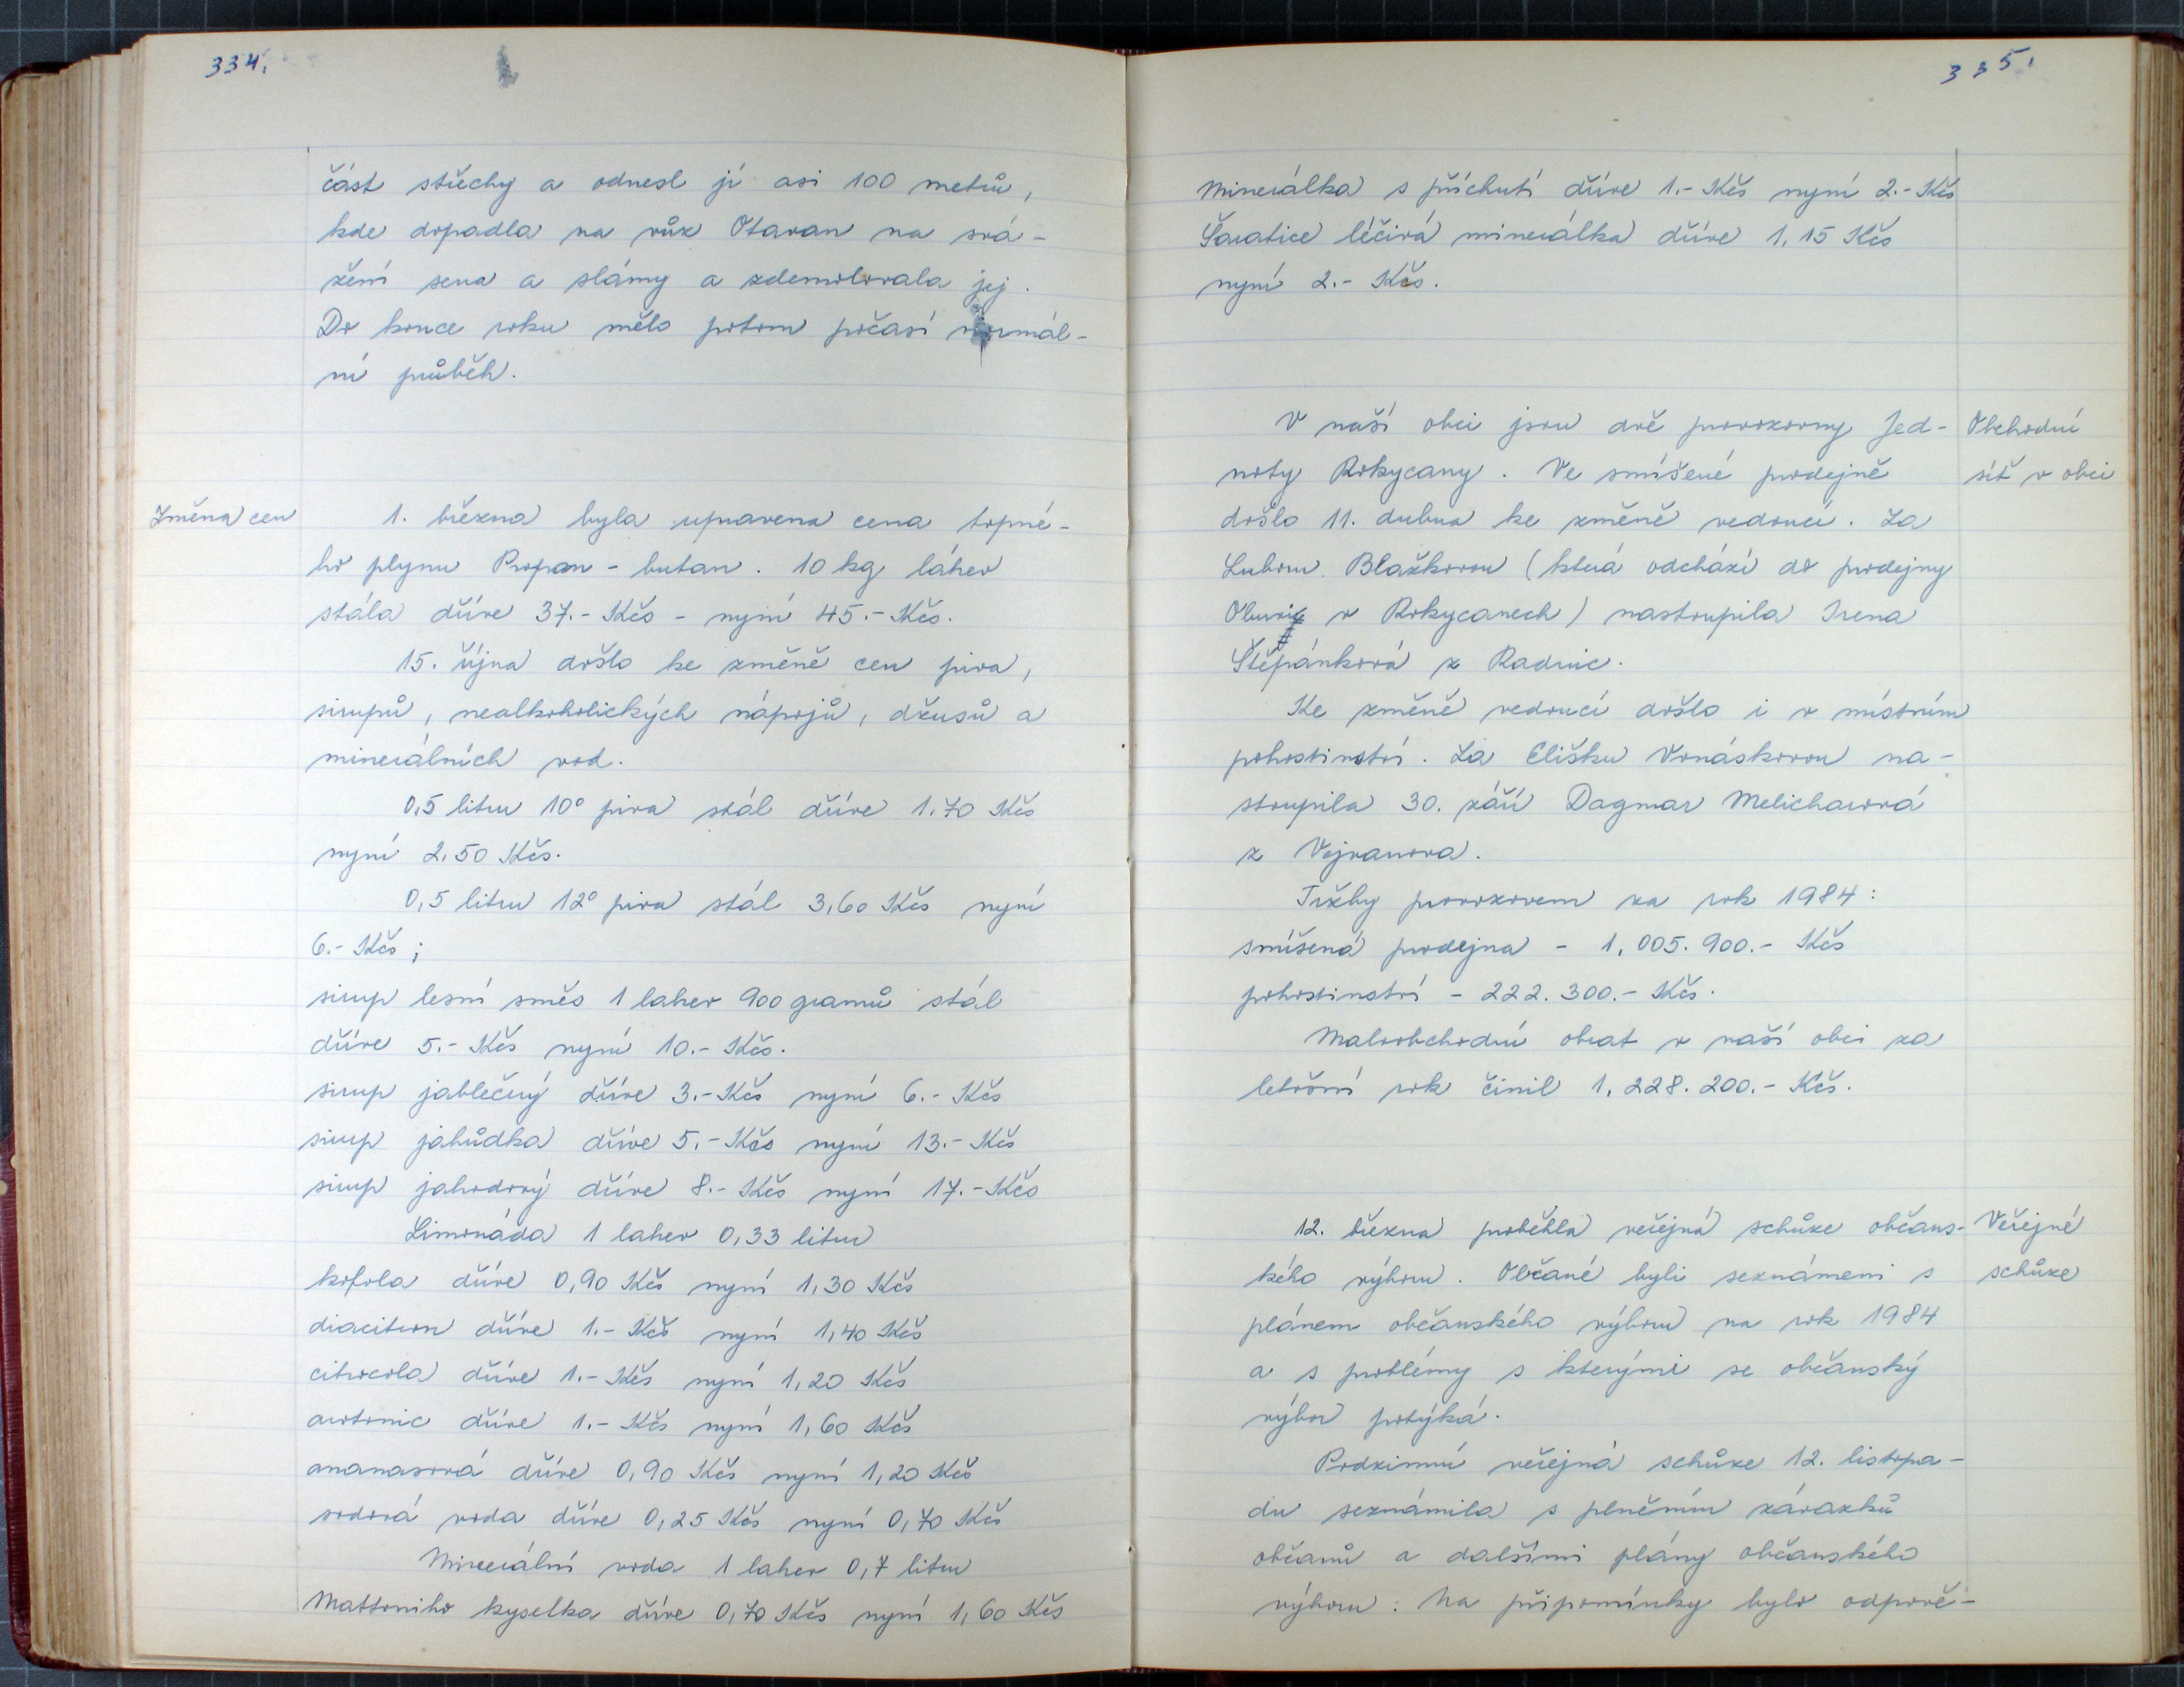 334.
část střechy a odnesl jí asi 100 metrů,
kde dopadla na vůz Otavan na svá-
žení sena a slámy a zdemolovala jej.
Do konce roku mělo potom počasí normál-
ní průběh.
Změna cen
1. března byla upravena cena topné-
ho plynu Propan - butan. 10 kg láhev
stála dříve 37.- Kčs - nyní 45.- Kčs.
15. října došlo ke změně cen piva,
sirupů, nealkoholických nápojů, džusů a
minerálních vod.
0,5 litru 10° piva stál dříve 1.70 Kčs
nyní 2,50 Kčs.
0,5 litru 12° piva stál 3,60 Kčs nyní
6.- Kčs;
sirup lesní směs 1 lahev 900 gramů stál
dříve 5.- Kčs nyní 10.- Kčs.
sirup jablečný dříve 3.- Kčs nyní 6.- Kčs
sirup jahůdka dříve 5.- Kčs nyní 13.- Kčs
sirup jahodový dříve 8.- Kčs nyní 17.- Kčs
Limonáda 1 lahev 0,33 litru
kofola dříve 0,90 Kčs nyní 1,30 Kčs
diacitron dříve 1.- Kčs nyní 1,40 Kčs
citrocola dříve 1.- Kčs nyní 1,20 Kčs
arotonic dříve 1.- Kčs nyní 1,60 Kčs
ananasová dříve 0,90 Kčs nyní 1,20 Kčs
sodová voda dříve 0,25 Kčs nyní 0,70 Kčs
Minerální voda 1 lahev 0,7 litru
Mattoniho kyselka dříve 0,70 Kčs nyní 1,60 Kčs
335.
Minerálka s příchutí dříve 1.- Kčs nyní 2.- Kčs
Šaratice léčivá minerálka dříve 1,15 Kčs
nyní 2.- Kčs.
Obchodní
síť v obci
V naší obci jsou dvě provozovny Jed-
noty Rokycany. Ve smíšené prodejně
došlo 11. dubna ke změně vedoucí. Za
Lubou Blažkovou (která odchází do prodejny
Obuvi v Rokycanech) nastoupila Irena
Štěpánková z Radnic.
Ke změně vedoucí došlo i v místním
pohostinství. Za Elišku Vonáskovou na-
stoupila 30. září Dagmar Melicharová
z Vejvanova.
Tržby provozoven za rok 1984:
smíšená prodejna - 1,005.900.- Kčs
pohostinství - 222.300.- Kčs.
Maloobchodní obrat v naší obci za
letošní rok činil 1,228.200.- Kčs.
Veřejné
schůze
12. března proběhla veřejná schůze občans-
kého výboru. Občané byli seznámeni s
plánem občanského výboru na rok 1984
a s problémy s kterými se občanský
výbor potýká.
Podzimní veřejná schůze 12. listopa-
du seznámila s plněním závazků
občanů a dalšími plány občanského
výboru. Na připomínky bylo odpově-